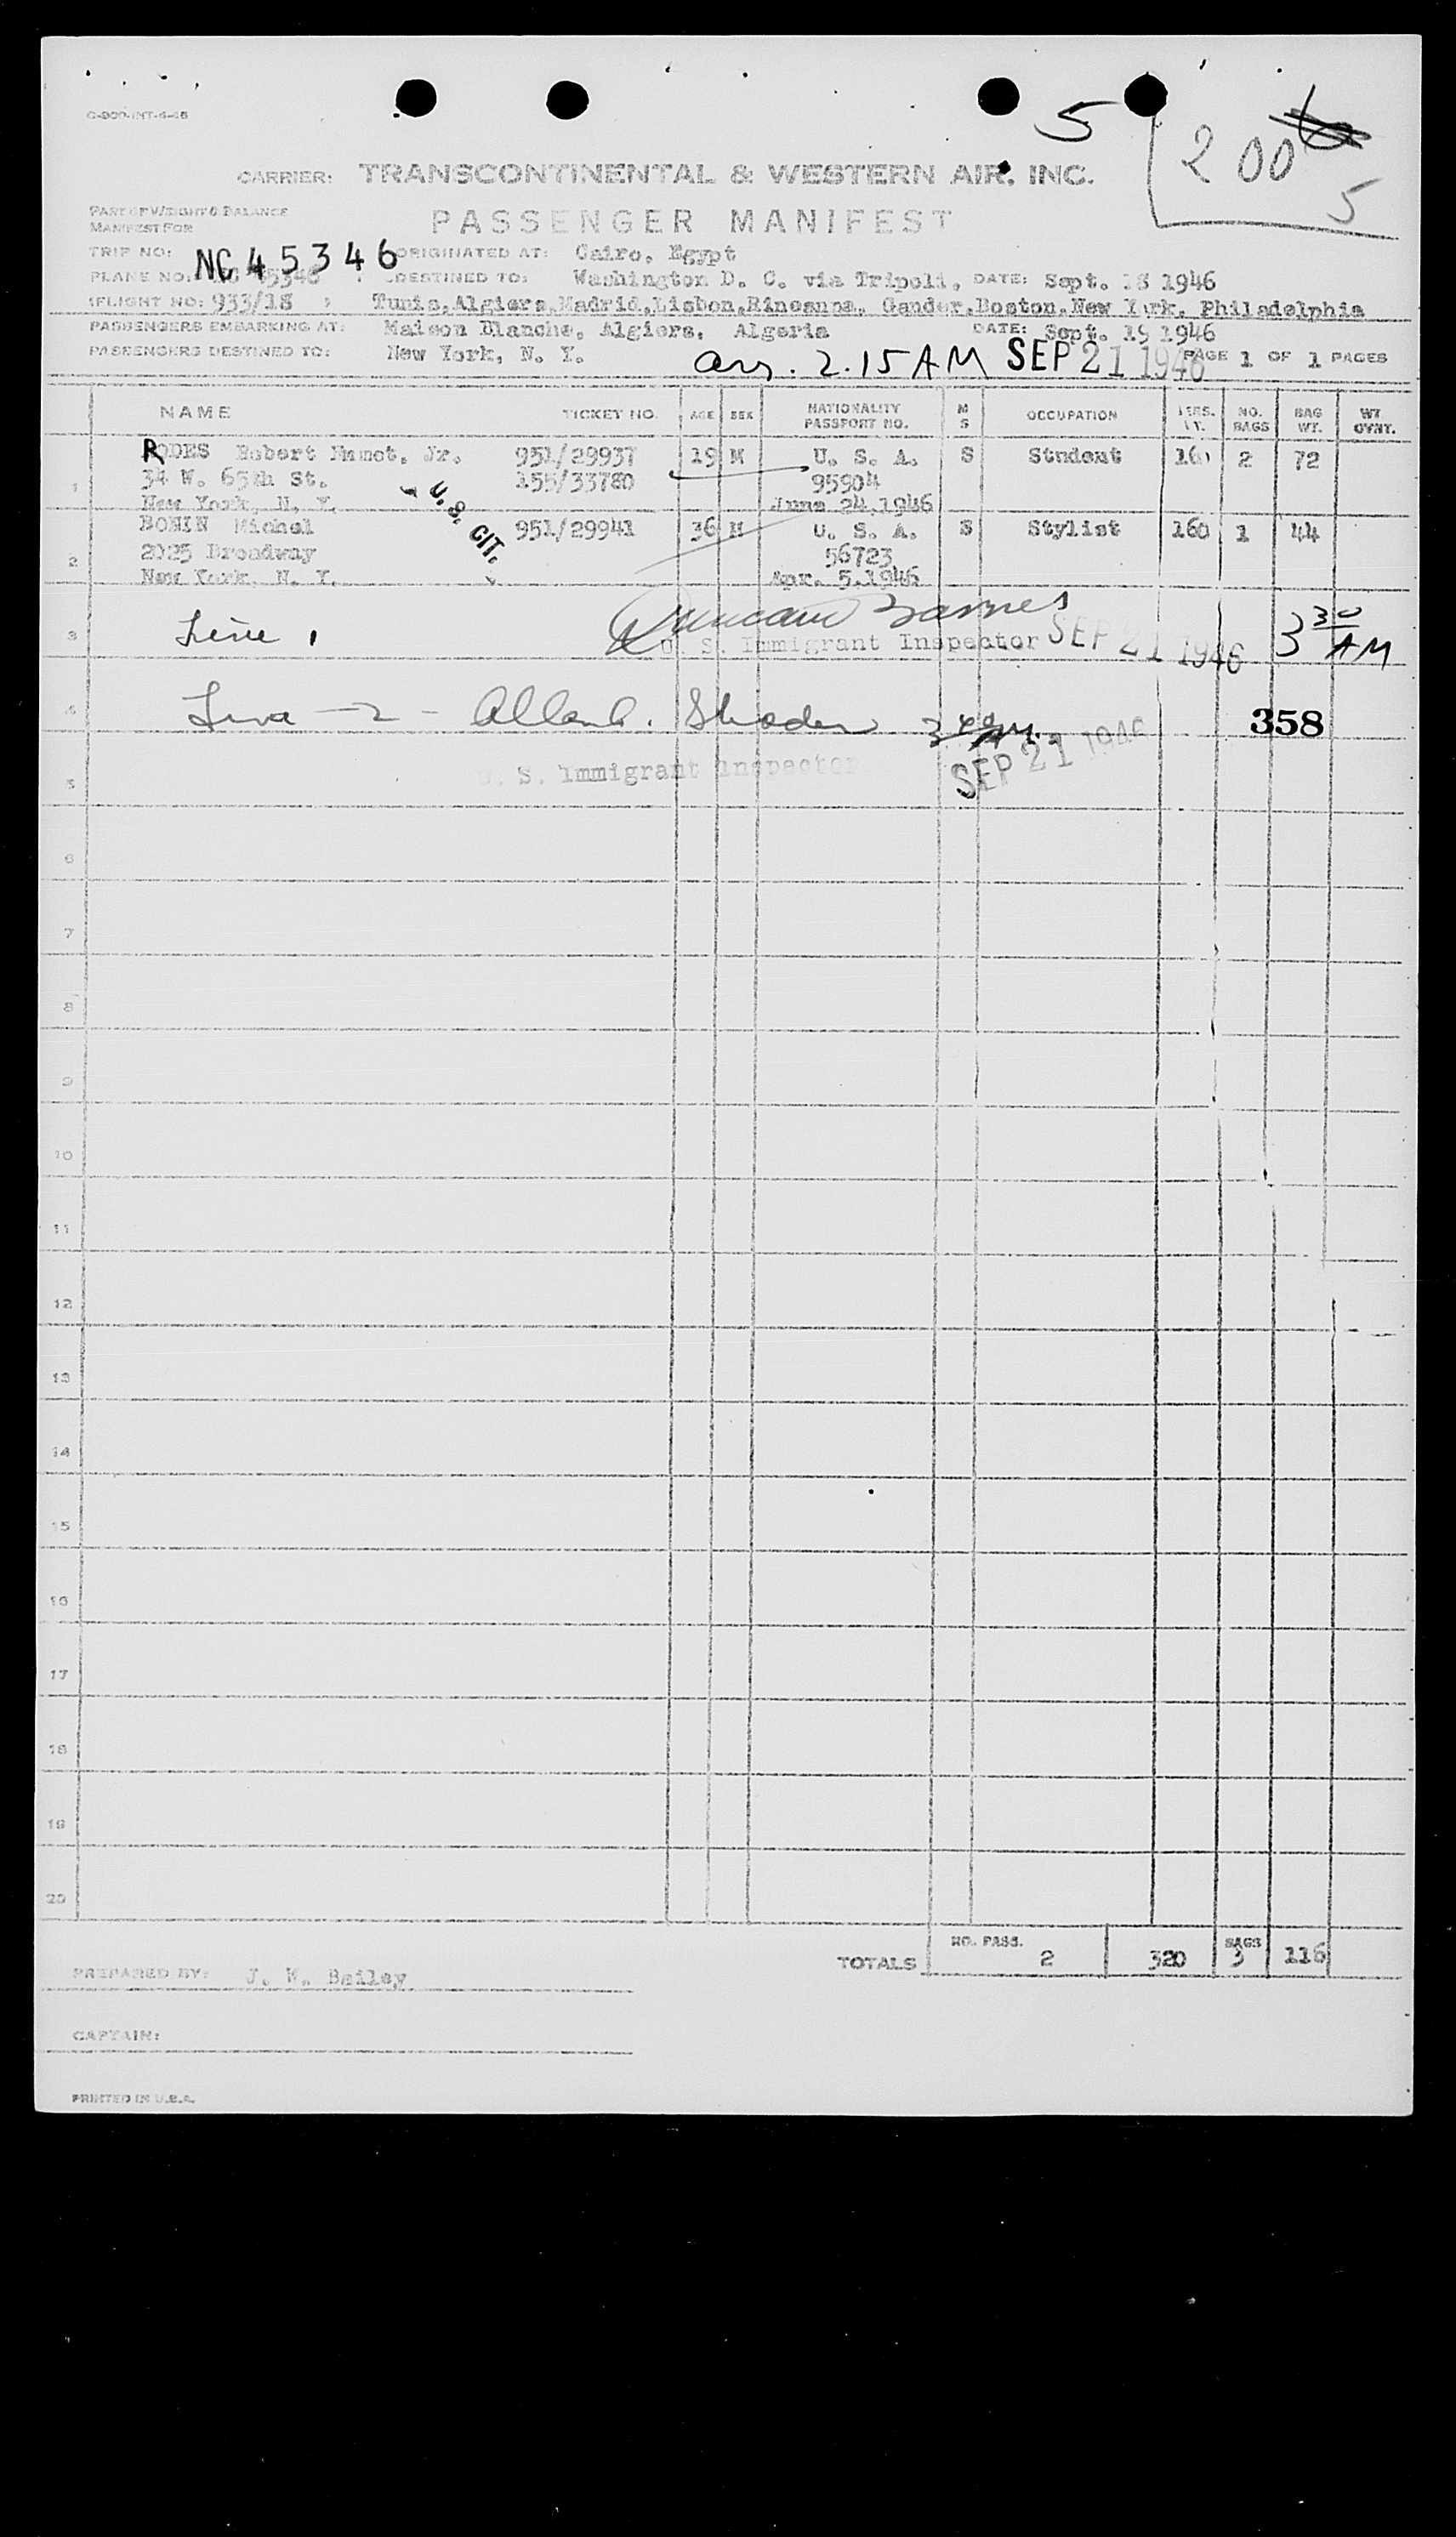 C-900-INT-4-46
5
200
5
CARRIER: TRANSCONTINENTAL & WESTERN AIR, INC.
PART OF WEIGHT & BALANCE
MANIFEST FOR
PASSENGER MANIFEST
TRIP NO: ORIGINATED AT: Cairo, Egypt
PLANE NO: NC 45346 DESTINED TO: Washington D. C. via Tripoli, DATE: Sept. 18 1946
FLIGHT NO: 933/18 Tunis, Algiers, Madrid, Lisbon, Rineanna, Gander, Boston, New York, Philadelphia
PASSENGERS EMBARKING AT: Maison Blanche, Algiers, Algeria DATE: Sept. 19 1946
PASSENGERS DESTINED TO: New York, N. Y. arr. 2.15 AM SEP 21 1946 PAGE 1 OF 1 PAGES
NAME TICKET NO. AGE SEX NATIONALITY PASSPORT NO. M S OCCUPATION PERS. WT. NO. BAGS BAG WT. WT OVNT.
1 RODES Robert Jr. 951/29937 19 M U. S. A. S Student 160 2 72
34 W. 65th St. 155/33780 95904
New York, N. Y. June 24, 1946
U. S. CIT.
2 BONIN Michel 951/29941 36 M U. S. A. S Stylist 160 1 44
2025 Broadway 56723
New York, N. Y. Apr. 5, 1946
3 Line 1 Duncan Barnes
U. S. Immigrant Inspector SEP 21 1946 3 30 AM
4 Line — 2 - 358
U. S. Immigrant Inspector SEP 21 1946
5
6
7
8
9
10
11
12
13
14
15
16
17
18
19
20
TOTALS NO. PASS. 2 320 BAGS 3 116
PREPARED BY: J. W. Bailey
CAPTAIN:
PRINTED IN U.S.A.